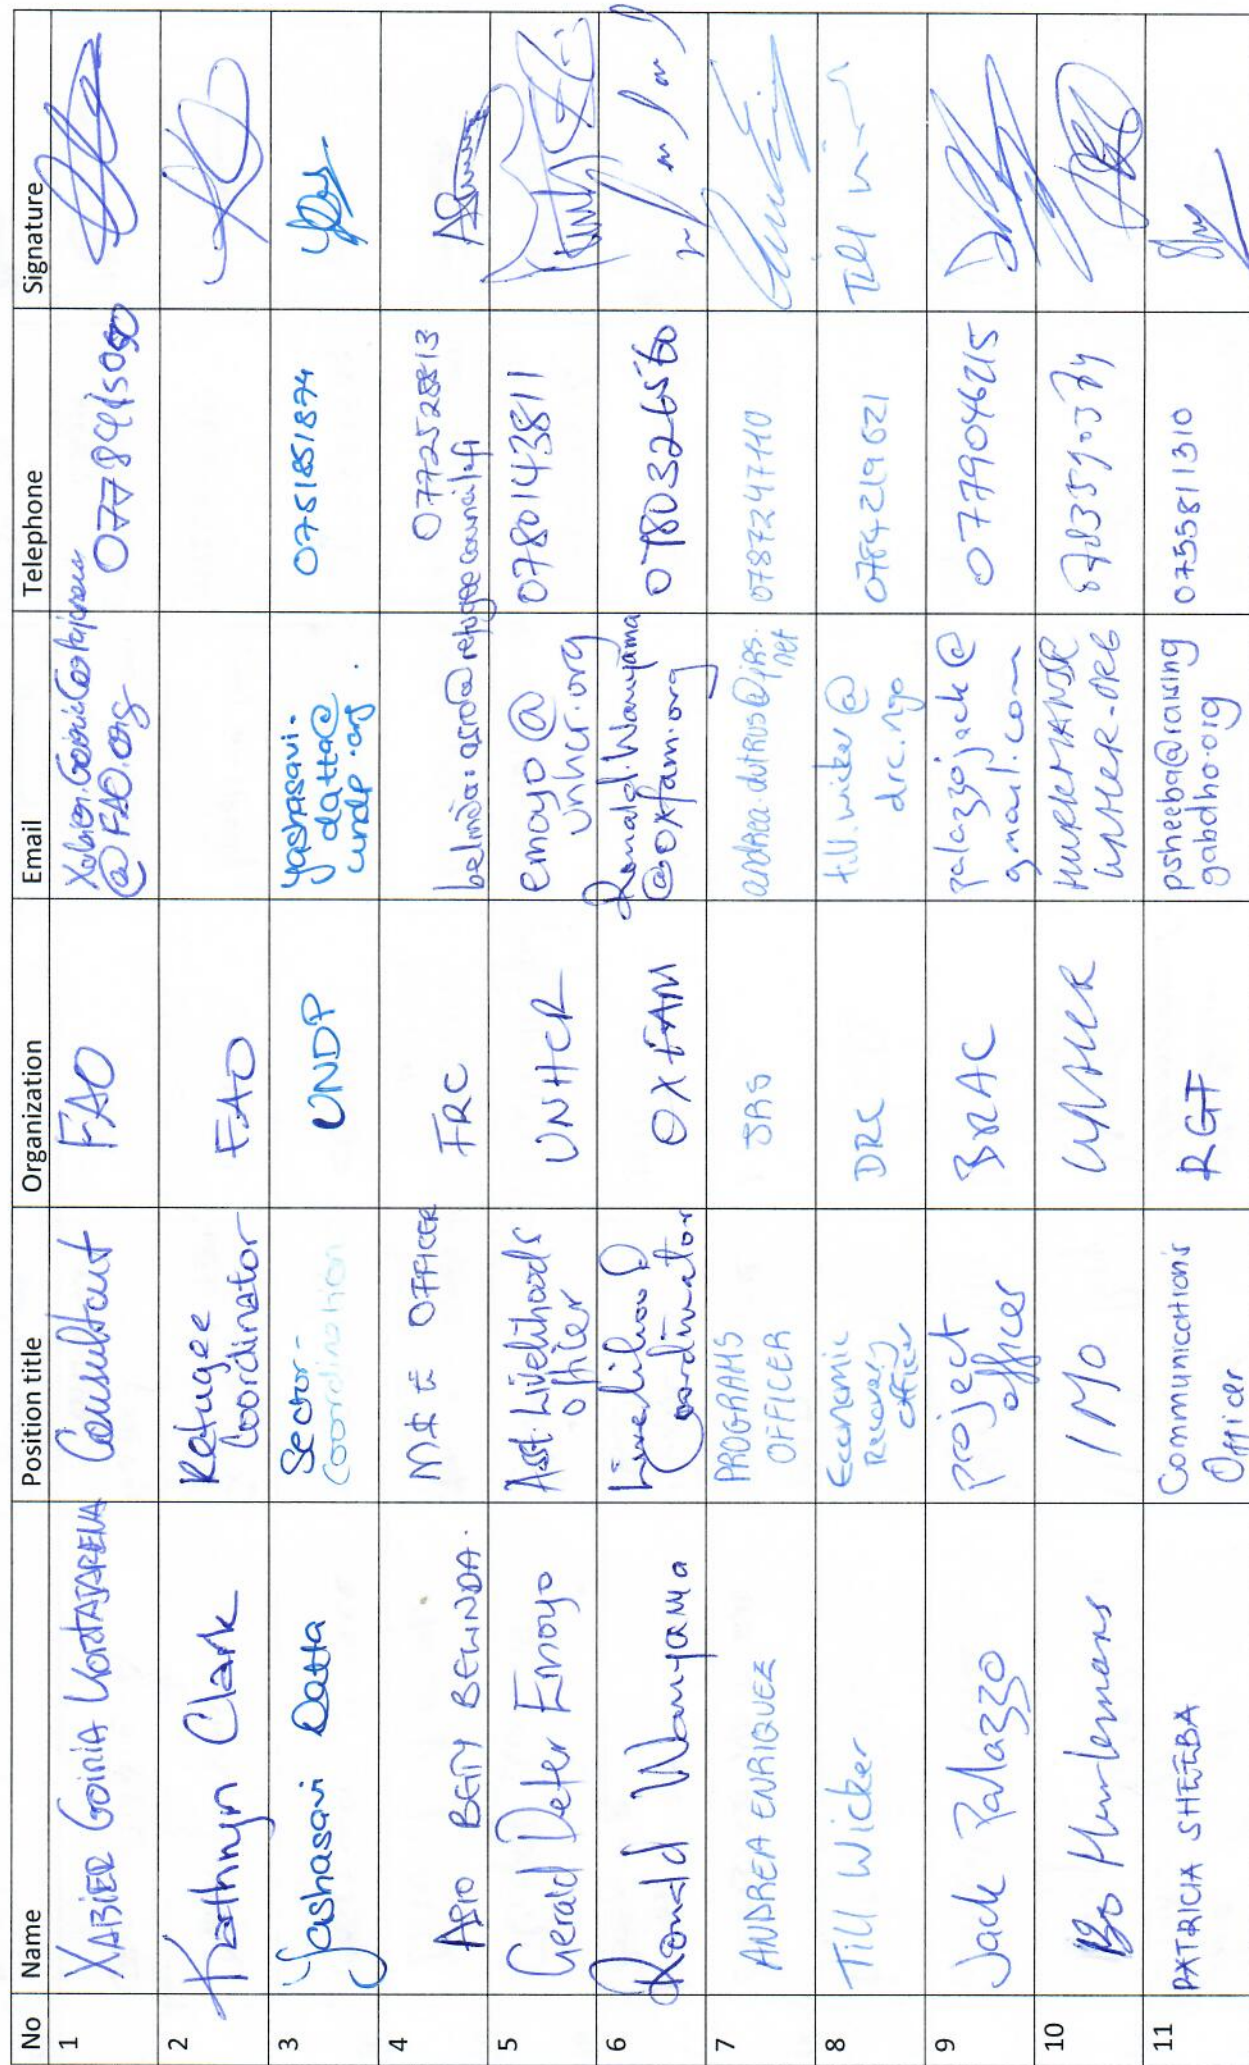 No Name Position title Organization Email Telephone Signature
1 XABIER Goiria Consultant FAO @FAO.org
2 Kathryn Clark Refugee Coordinator FAO
3 Yashasavi Datta Sector Coordination UNDP yashasavi.datta@undp.org 0751851874
4 BETTY BELINDA. M&E OFFICER FRC 0772528813
5 Gerald Peter Emoyo Asst. Livelihoods Officer UNHCR emoyo@unhcr.org 0780143811
6 Ronald Wanyama Livelihood Coordinator OXFAM Ronald.Wanyama@oxfam.org 0780326560
7 ANDREA ENRIQUEZ PROGRAMS OFFICER JRS
8 Till Wicker Economic Recovery Officer DRC till.wicker@drc.ngo 0784219621
9 Jack Palazzo Project Officer BRAC palazzojack@gmail.com 0779046215
10 Bo Hurkmans IMO UNHCR
11 PATRICIA SHEEBA Communications Officer RGF psheeba@raisinggabdho.org 0755811310